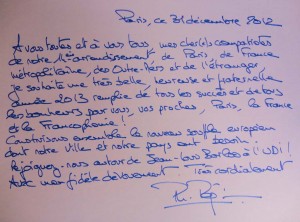 Paris, ce 31 décembre 2012
A vous toutes et à vous tous, mes cher(e)s compatriotes
de notre 11e arrondissement de Paris, de France
métropolitaine, des Outre-Mers et de l'étranger,
je souhaite une très belle, heureuse et fraternelle
année 2013 remplie de tous les succès et de tous
les bonheurs pour vous, vos proches, Paris, la France
et la Francophonie !
Construisons ensemble le nouveau souffle européen
dont notre Ville et notre pays ont besoin !
Rejoignez-nous autour de Jean-Louis Borloo à l'UDI !
Avec mon fidèle dévouement. Très cordialement